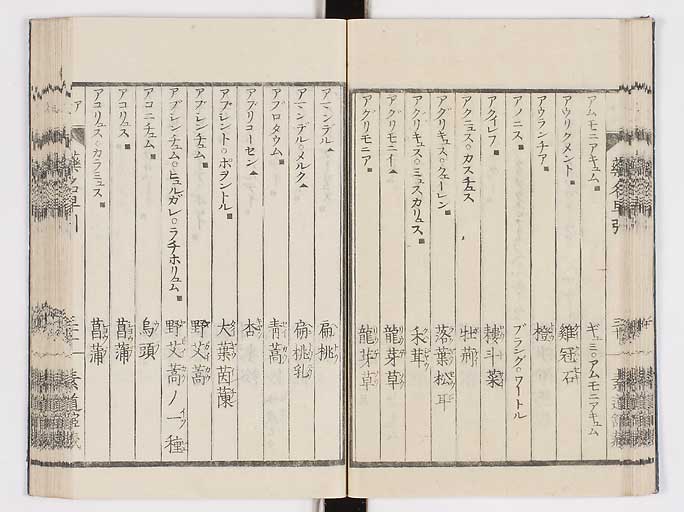 アムモニアキュム ギュミ○アムモニアキュム
アウリクメント 雞冠石
アウランチア 橙
アノニス ブラング○ワートル
アクイレフ 耬斗菜
アクニュス○カスチュス 牡荊
アグリキュス○クェーレン 落葉松耳
アグリキュス○ミュスカリュス 禾茸
アグリモニイ 龍芽草
アグリモニア 龍芽草
アマンデル 扁桃
アマンデル○メルク 扁桃乳
アブロタウム 青蒿
アプリコーセン 杏
アブレント○ボヲントル 大葉茵蔯
アブレンチュム 野艾蒿
アブレンチュム○ヒュルガレ○ラチホリュム 野艾蒿ノ一種
アコニチュム 烏頭
アコリュス 菖蒲
アコリュス○カラミュス 菖蒲
藥名早引